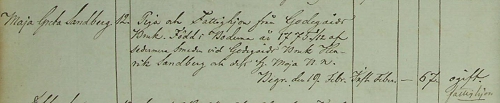 Maja Greta Sandberg 12. Piga och Fattighjon från Godegårds
Bruk. Född i Bodarna år 1775/12 af
sedermera Smeden vid Godegårds Bruk Hen-
rik Sandberg och dess h. Maja N. N.
Begr. den 19 Febr. Febr. — 67. ogift.
fattighjon